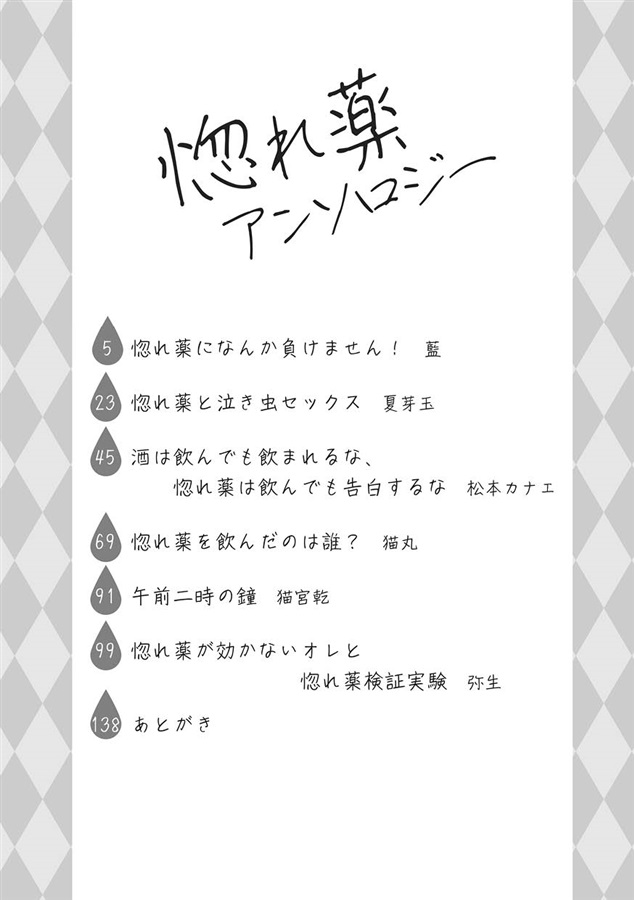 惚れ薬
アンソロジー
5 惚れ薬になんか負けません！ 藍
23 惚れ薬と泣き虫セックス 夏芽玉
45 酒は飲んでも飲まれるな、
惚れ薬は飲んでも告白するな 松本カナエ
69 惚れ薬を飲んだのは誰？ 猫丸
91 午前二時の鐘 猫宮乾
99 惚れ薬が効かないオレと
惚れ薬検証実験 弥生
138 あとがき